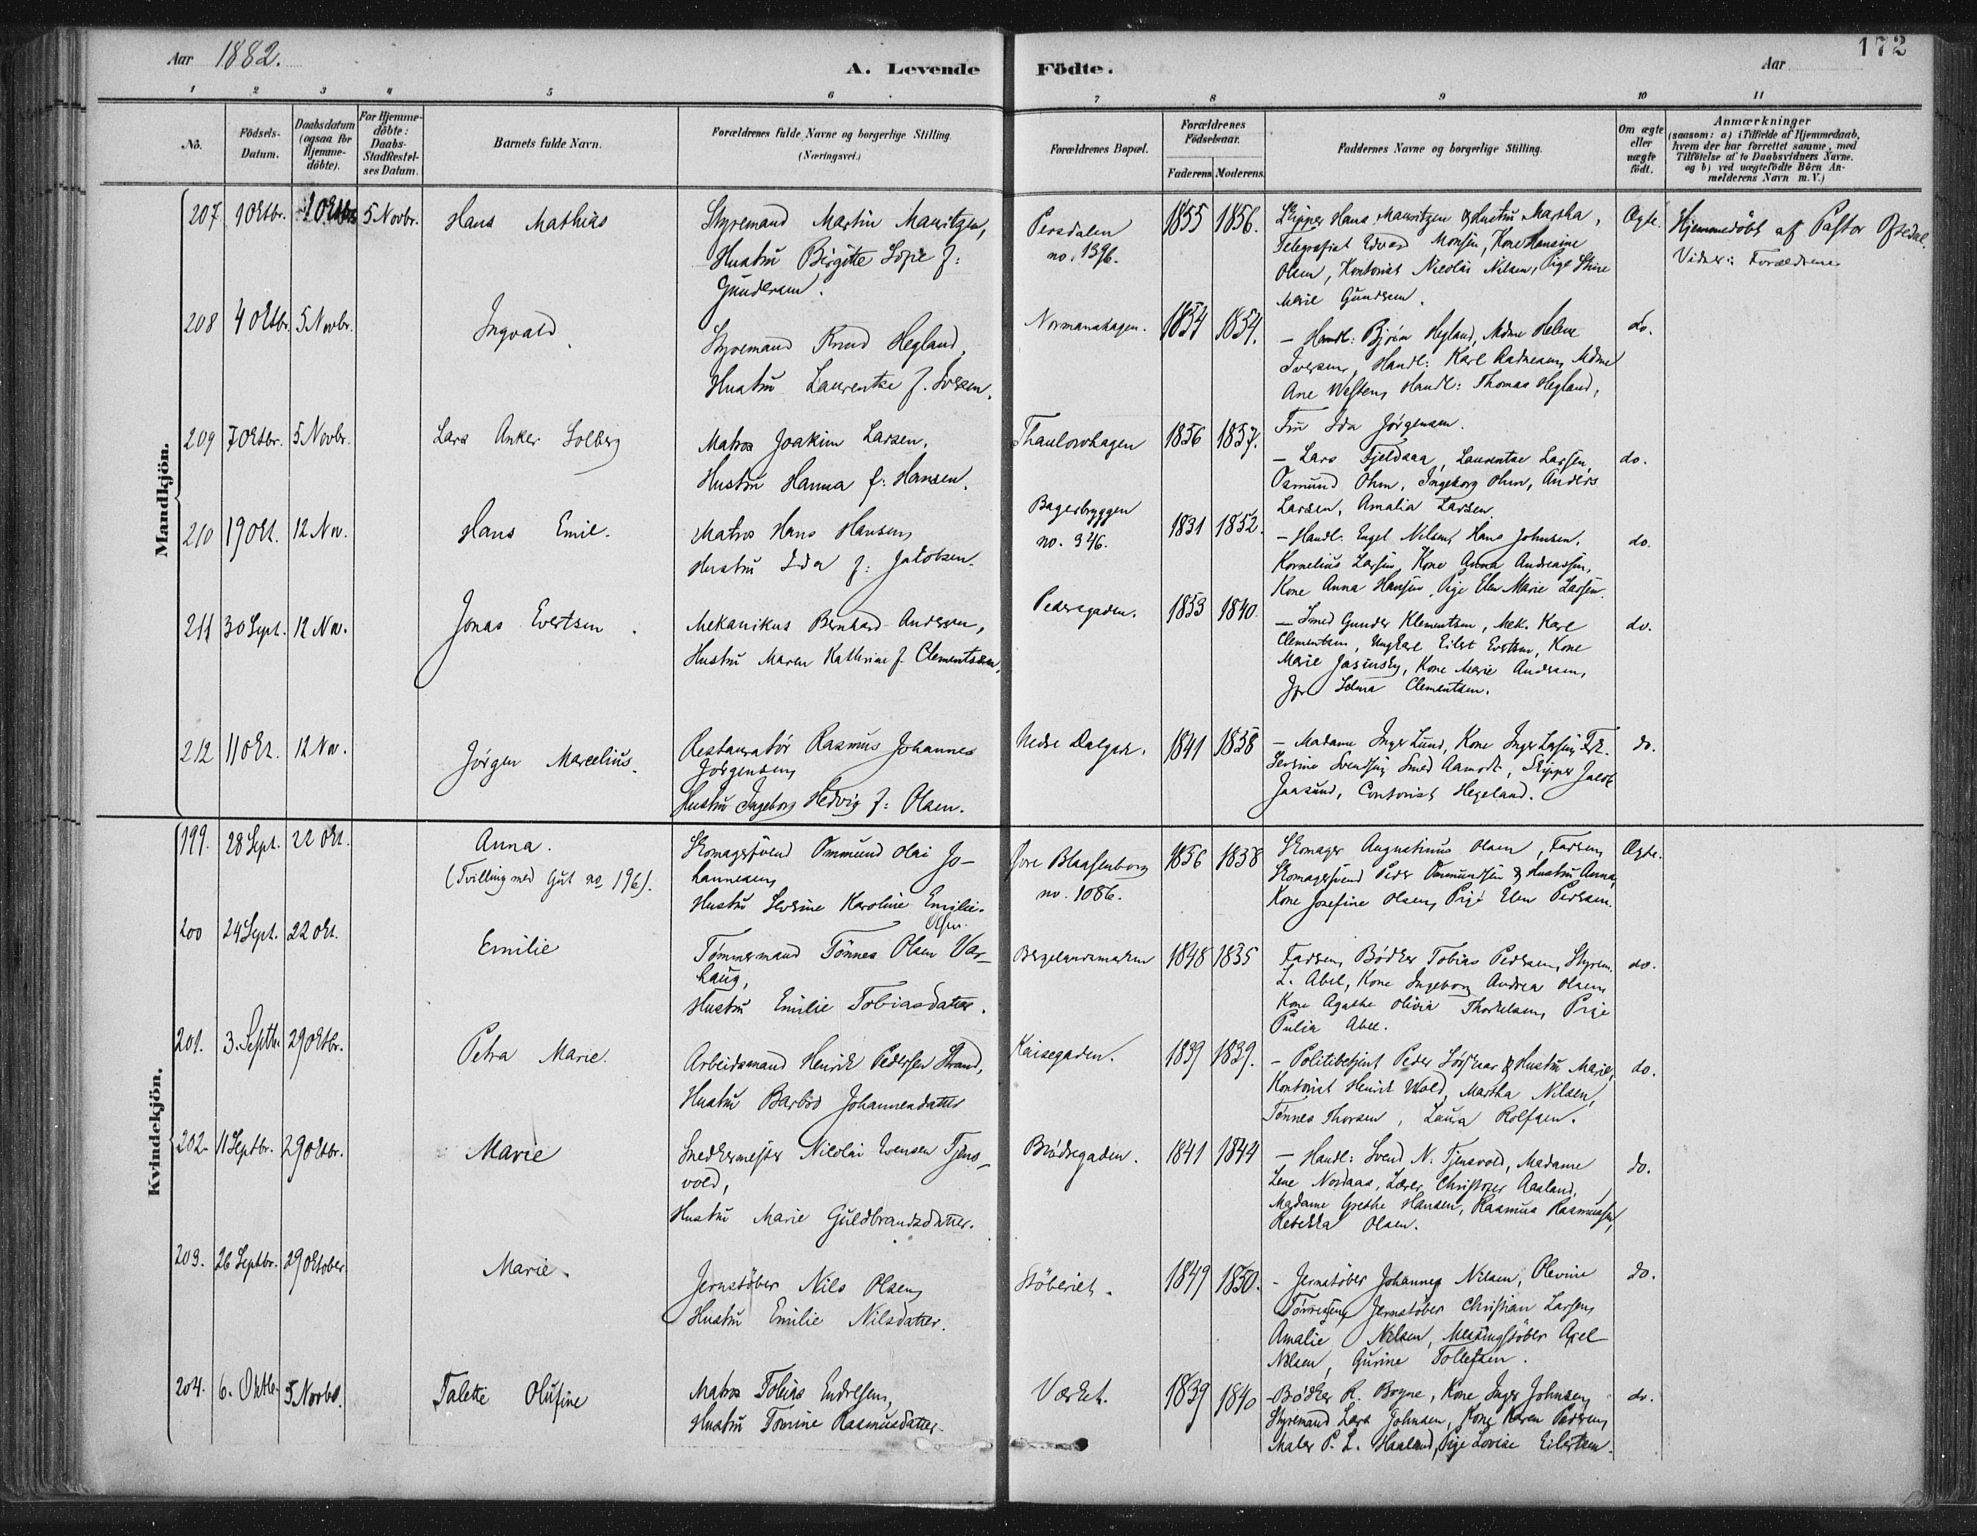 Aar 1882.
A. Levende Födte.
Aar
172
1 2 3 4 5 6 7 8 9 10 11
No.
Födsels-
Datum.
Daabsdatum
(ogsaa for
Hjemme-
döbte).
For Hjemme-
döbte:
Daabs-
Stadfæstel-
ses Datum.
Barnets fulde Navn.
Forældrenes fulde Navne og borgerlige Stilling.
(Næringsvei.)
Forældrenes Bopæl.
Forældrenes
Födselsaar.
Faderens Moderens
Faddernes Navne og borgerlige Stilling.
Om ægte
eller
uægte
födt.
Anmærkninger
(saasom: a) i Tilfælde af Hjemmedaab,
hvem der har forrettet samme, med
Tilföielse af to Daabsvidners Navne.
og b) ved uægtefödte Börn An-
melderens Navn m. V.)
Mandkjön.
207. 1 Oktbr. 1 Oktbr 5 Novbr. Hans Mathias
Styremand Martin Mauritzen,
Hustru Birgitte Sofie f:
Gundersen.
Persdalen
no. 1376.
1855 1856.
Skipper Hans Mauritzen & Hustru Martha,
Telegrafist Edvard Monsen, Kone Hansine
Olsen, Kontorist Nicolai Nilsen, Pige Stine
Marie Gundersen.
Ægte.
Hjemmedöbt af Pastor Oftedal.
Vidner: Forældrene
208 4 Oktbr. 5 Novbr. Ingvald.
Styremand Knud Hegland,
Hustru Laurentze f. Iversen.
Normanshagen.
1854 1854.
— Handl: Björn Hegland, Mdme Helene
Iversen, Handl: Karl Madme
Ane Westen, Handl: Thomas Hegland,
Fru Ida Jörgensen.
do.
209 7 Oktbr. 5 Novbr. Lars Anker Solberg
Matros Joakim Larsen,
Hustru Hanna f: Hansen.
Thaulowhagen
1856 1857.
— Lars Fjeldaaa, Laurentze Larsen,
Osmund Ohm, Ingeborg Ohm, Anders
Larsen, Amalia Larsen.
do.
210 19 Okt. 12 Nov. Hans Emil.
Matros Hans Hansen,
Hustru Ida f: Jakobsen.
Bagerbryggen
no. 346.
1831 1852.
— Handl: Engel Nilsen, Hans Johnsen,
Kornelius Larsen, Kone Anna Andreassen,
Kone Anna Hansen, Pige Elen Marie Larsen.
do.
211 30 Sept. 12 Nov. Jonas Evertsen.
Mekanikus Bernhard Andersen,
Hustru Maren Kathrine f. Clementsen.
Pedersgaden.
1853 1840.
— Smed Gunder Klementsen, Mek. Karl
Clementsen, Ungkarl Eilert Evertsen, Kone
Marie Jasinsky, Kone Marie Andersen,
Selma Clementsen.
do.
212 11 Okt. 12 Nov. Jörgen Marcelius.
Restauratør Rasmus Johannes
Jørgensen,
Hustru Ingeborg Hedvig f: Olsen.
Nedre Dalgade.
1841 1858
— Madame Inger Lund, Kone Inger Larsen, Frk.
Severine Svendsen, Smed Aamodt, Skipper Jacob
Jaasund, Contorist Hegeland.
do.
Kvindekjön.
199. 28 Sept. 22 Okt. Anna.
(Tvilling med Gut no 196).
Skomagersvend Ommund Olai Jo-
hannesen,
Hustru Severine Karoline Emilie.
Olsen.
Øvre Blaasenborg
no. 1086.
1856 1858
Skomager Augustinus Olsen, Farsen,
Skomagersvend Peder Ommundsen & Hustru Anna,
Kone Josefine Olsen, Pige Elen Pedersen.
Ægte.
200 24 Sept. 22 Okt. Emilie
Tømmermand Tönnes Olsen Var-
haug,
Hustru Emilie Tobiasdatter.
Bergelandsmarken
1848 1835
Farsen, Bödker Tobias Pedersen, Styrem.
L. Abel, Kone Ingeborg Andrea Olsen,
Kone Agathe Olivia Thorkelsen, Pige
Julia Abel.
do.
201. 3. Septbr. 29 Oktbr. Petra Marie.
Arbeidsmand Henrik Pedersen Strand,
Hustru Barbro Johannesdatter
Kaisegaden.
1839 1839.
— Politibetjent Peder Sörskaar & Hustru Marie,
Kontorist Henrik Wold, Martha Nilsen,
Tönnes Thorsen, Laura Rolfsen.
do.
202. 11 Septbr. 29 Oktbr. Marie
Snedkermester Nicolai Evensen Tjens-
vold,
Hustru Marie Guldbrandsdatter.
Brødregaden.
1841 1844
— Handl: Svend N. Tjensvold, Madame
Lene Nordaas, Lærer Christofer Aasland,
Madame Grethe Hansen, Rasmus Rasmussen,
Rebekka Olsen.
do.
203. 26 Septbr. 29 Oktober. Marie.
Jernstöber Nils Olsen,
Hustru Emilie Nilsdatter.
Stöberiet.
1849 1850.
- Jernstöber Johannes Nilsen, Olevine
Törresen, Jernstöber Christian Larsen,
Amalie Nilsen, Messingstöber Axel
Nilsen, Gurine Tollefsen.
do.
204. 6. Oktbr. 5 Novbr. Talette Olufine
Matros Tobias Endresen,
Hustru Tomine Rasmusdatter.
Værket.
1839 1840
- Bödker R. Bogne, Kone Inger Johnsen,
Styremand Lars Johnsen, Kone Karen Pedersen,
Maler P. L. Haaland, Pige Lovise Eilertsen.
do.